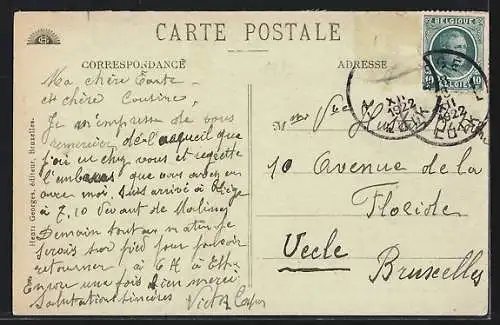 CARTE POSTALE
CORRESPONDANCE
ADRESSE
BELGIQUE
10 10
XII
1922
XII
1922
Ma chère Tante
et chère Cousine,
Je m'empresse de vous
remercier de l'accueil que
j'ai eu chez vous et regrette
l'embarras que vous avez eu
avec moi. Suis arrivé à Liège
à 7,10 venant de Malines
Demain tout au matin je
serais sur pied pour pouvoir
retourner à 6 H à
Encore une fois bien merci
Salutations sincères
Victor
Mme Vve
70 Avenue de la
Floride
Uccle
Bruxelles
Henri Georges, éditeur, Bruxelles.